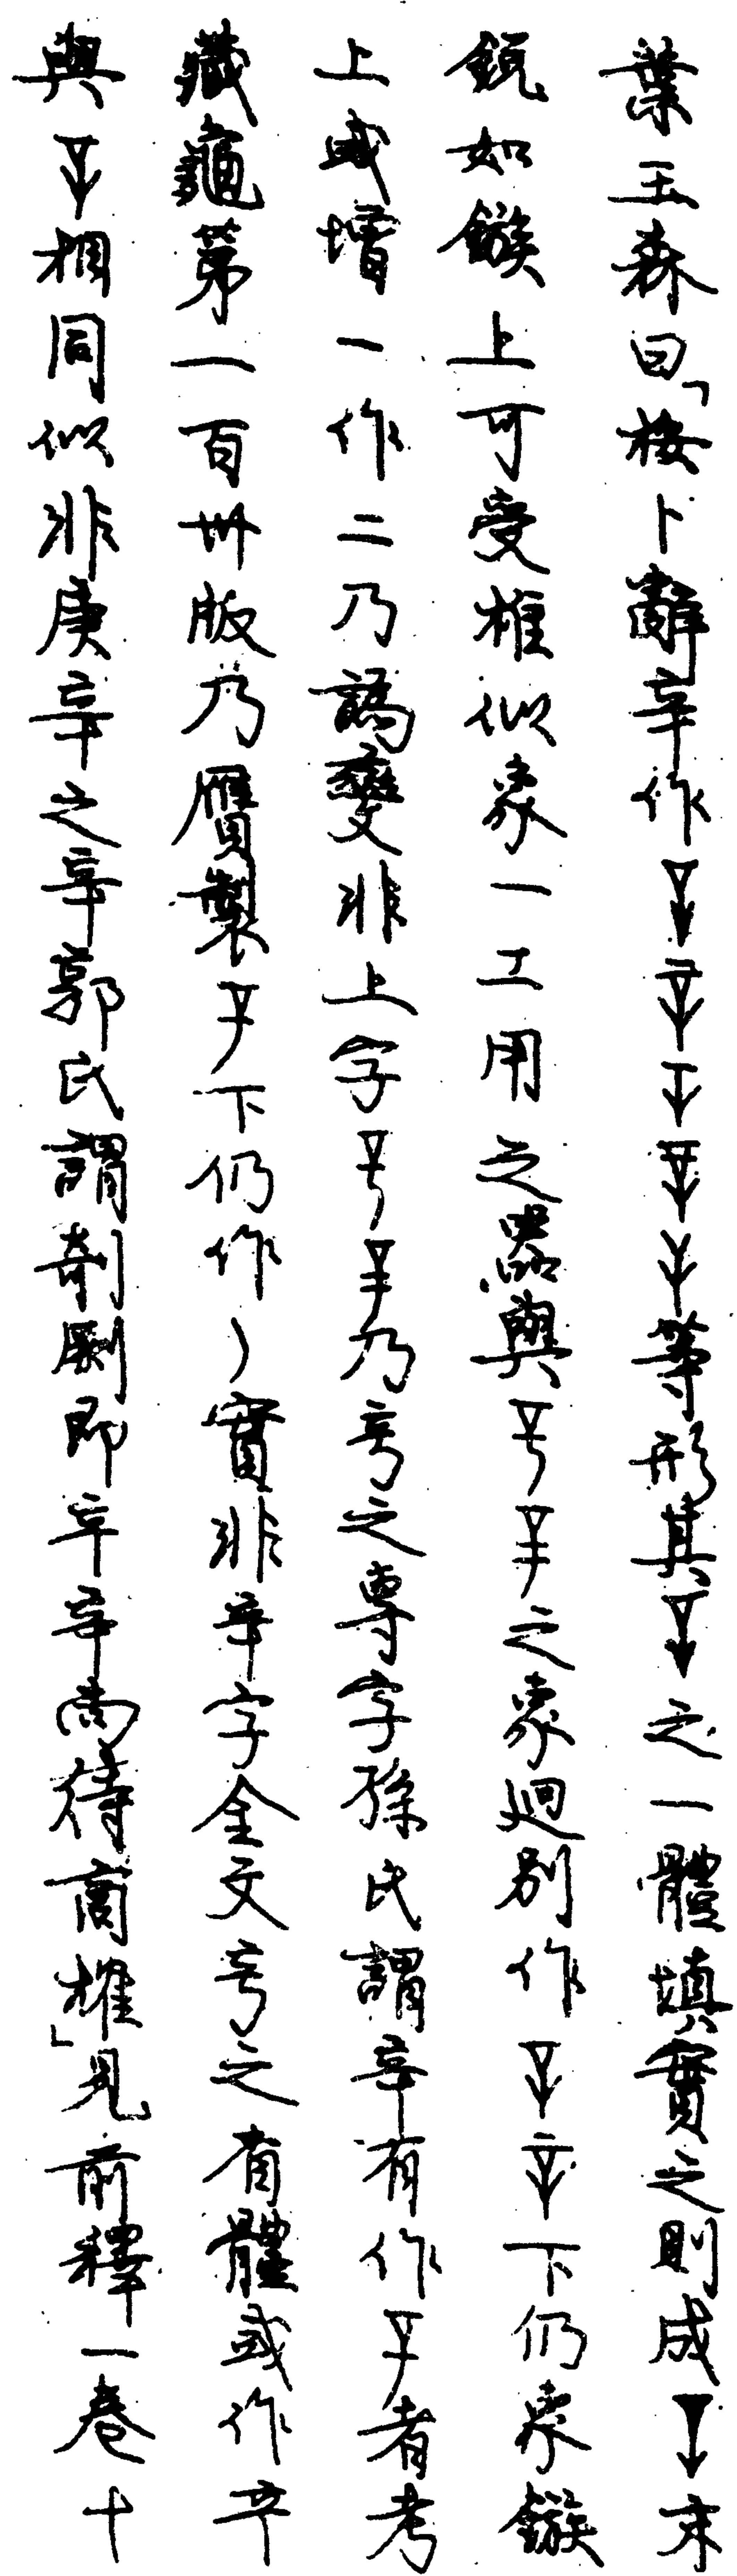 葉玉森曰「桉卜辭辛作等形其之一體填實之則成末
銳如鏃上可受椎似象一工用之器與之象迥別作下仍象鏃
上或增一作二乃譌變非上字乃䇂之專字孫氏謂辛有作者考
藏龜第一百卌版乃贋製下仍作實非辛字金文䇂之省體或作
與相同似非庚辛之辛郭氏謂剞劂即辛尚待商榷」見前釋一卷十